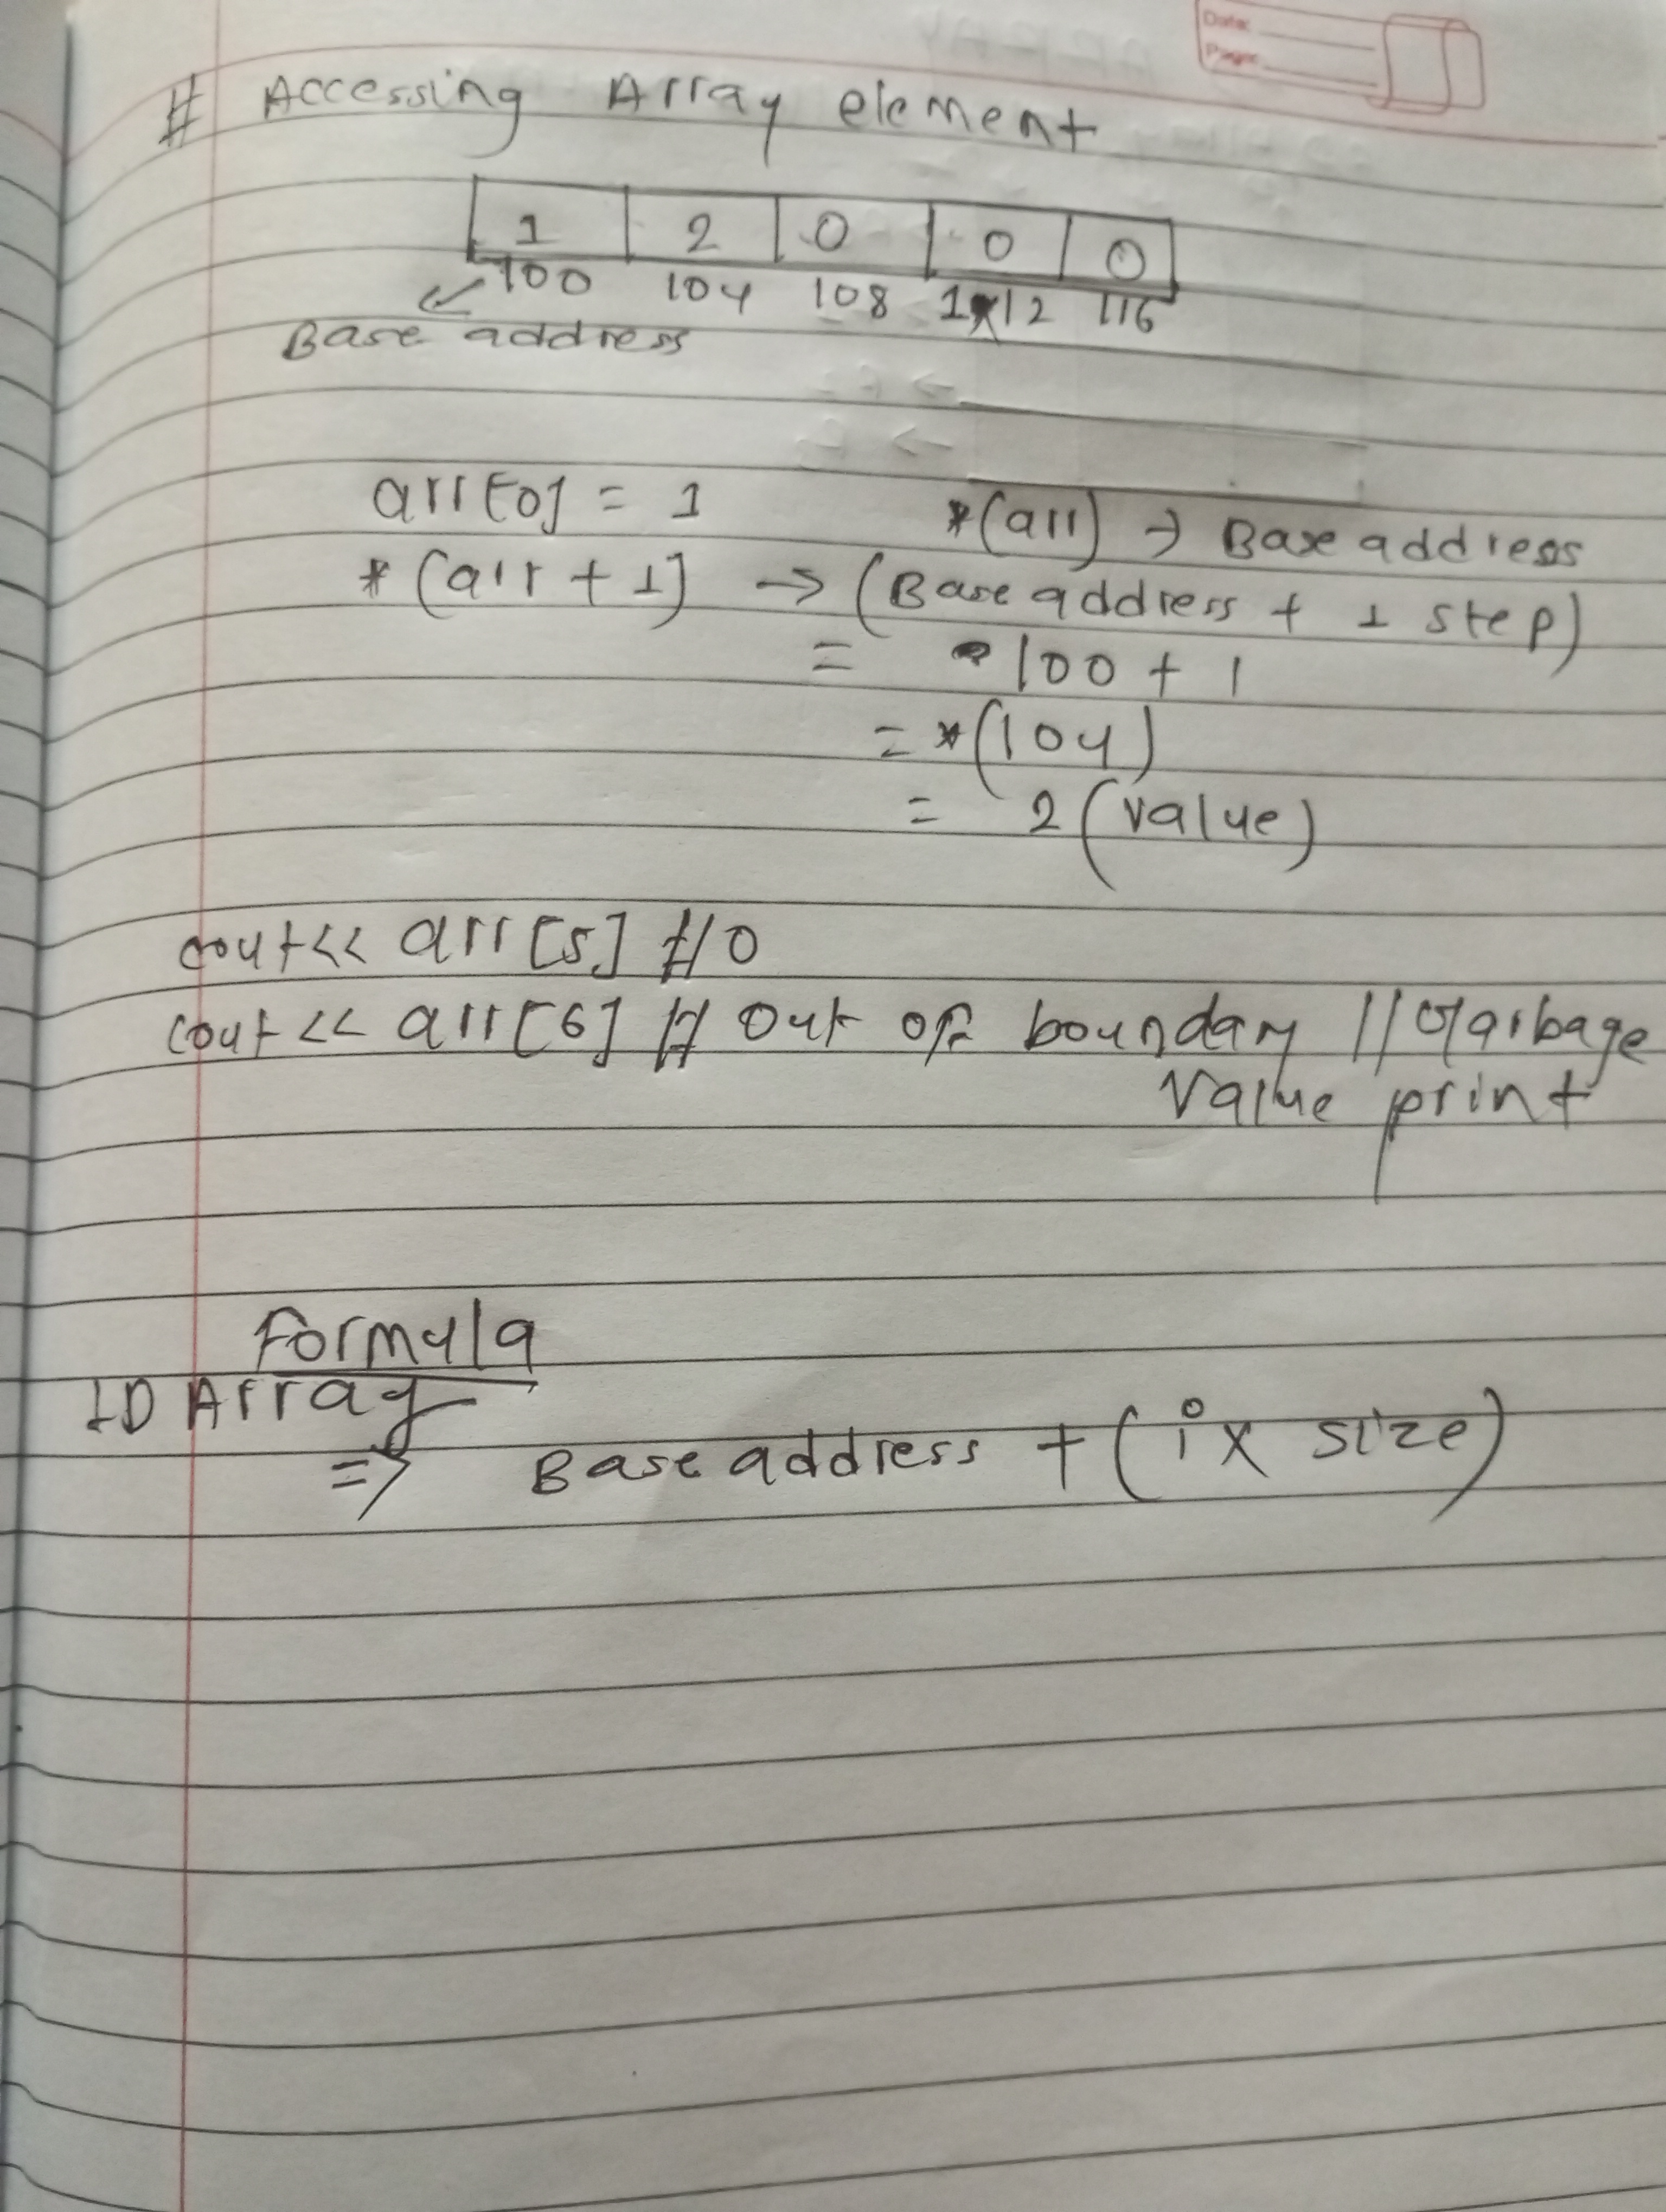 Date:
Page:
# Accessing Array element
1 2 0 0 0
100 104 108 112 116
Base address
arr[0] = 1 *(arr) → Base address
*(arr + 1] → (Base address + 1 step)
= 100 + 1
= *(104)
= 2 (value)
cout<< arr[5] // 0
cout << arr[6] // Out of boundary // Garbage
Value print
Formula
1D Array
=> Base address + (i x size)